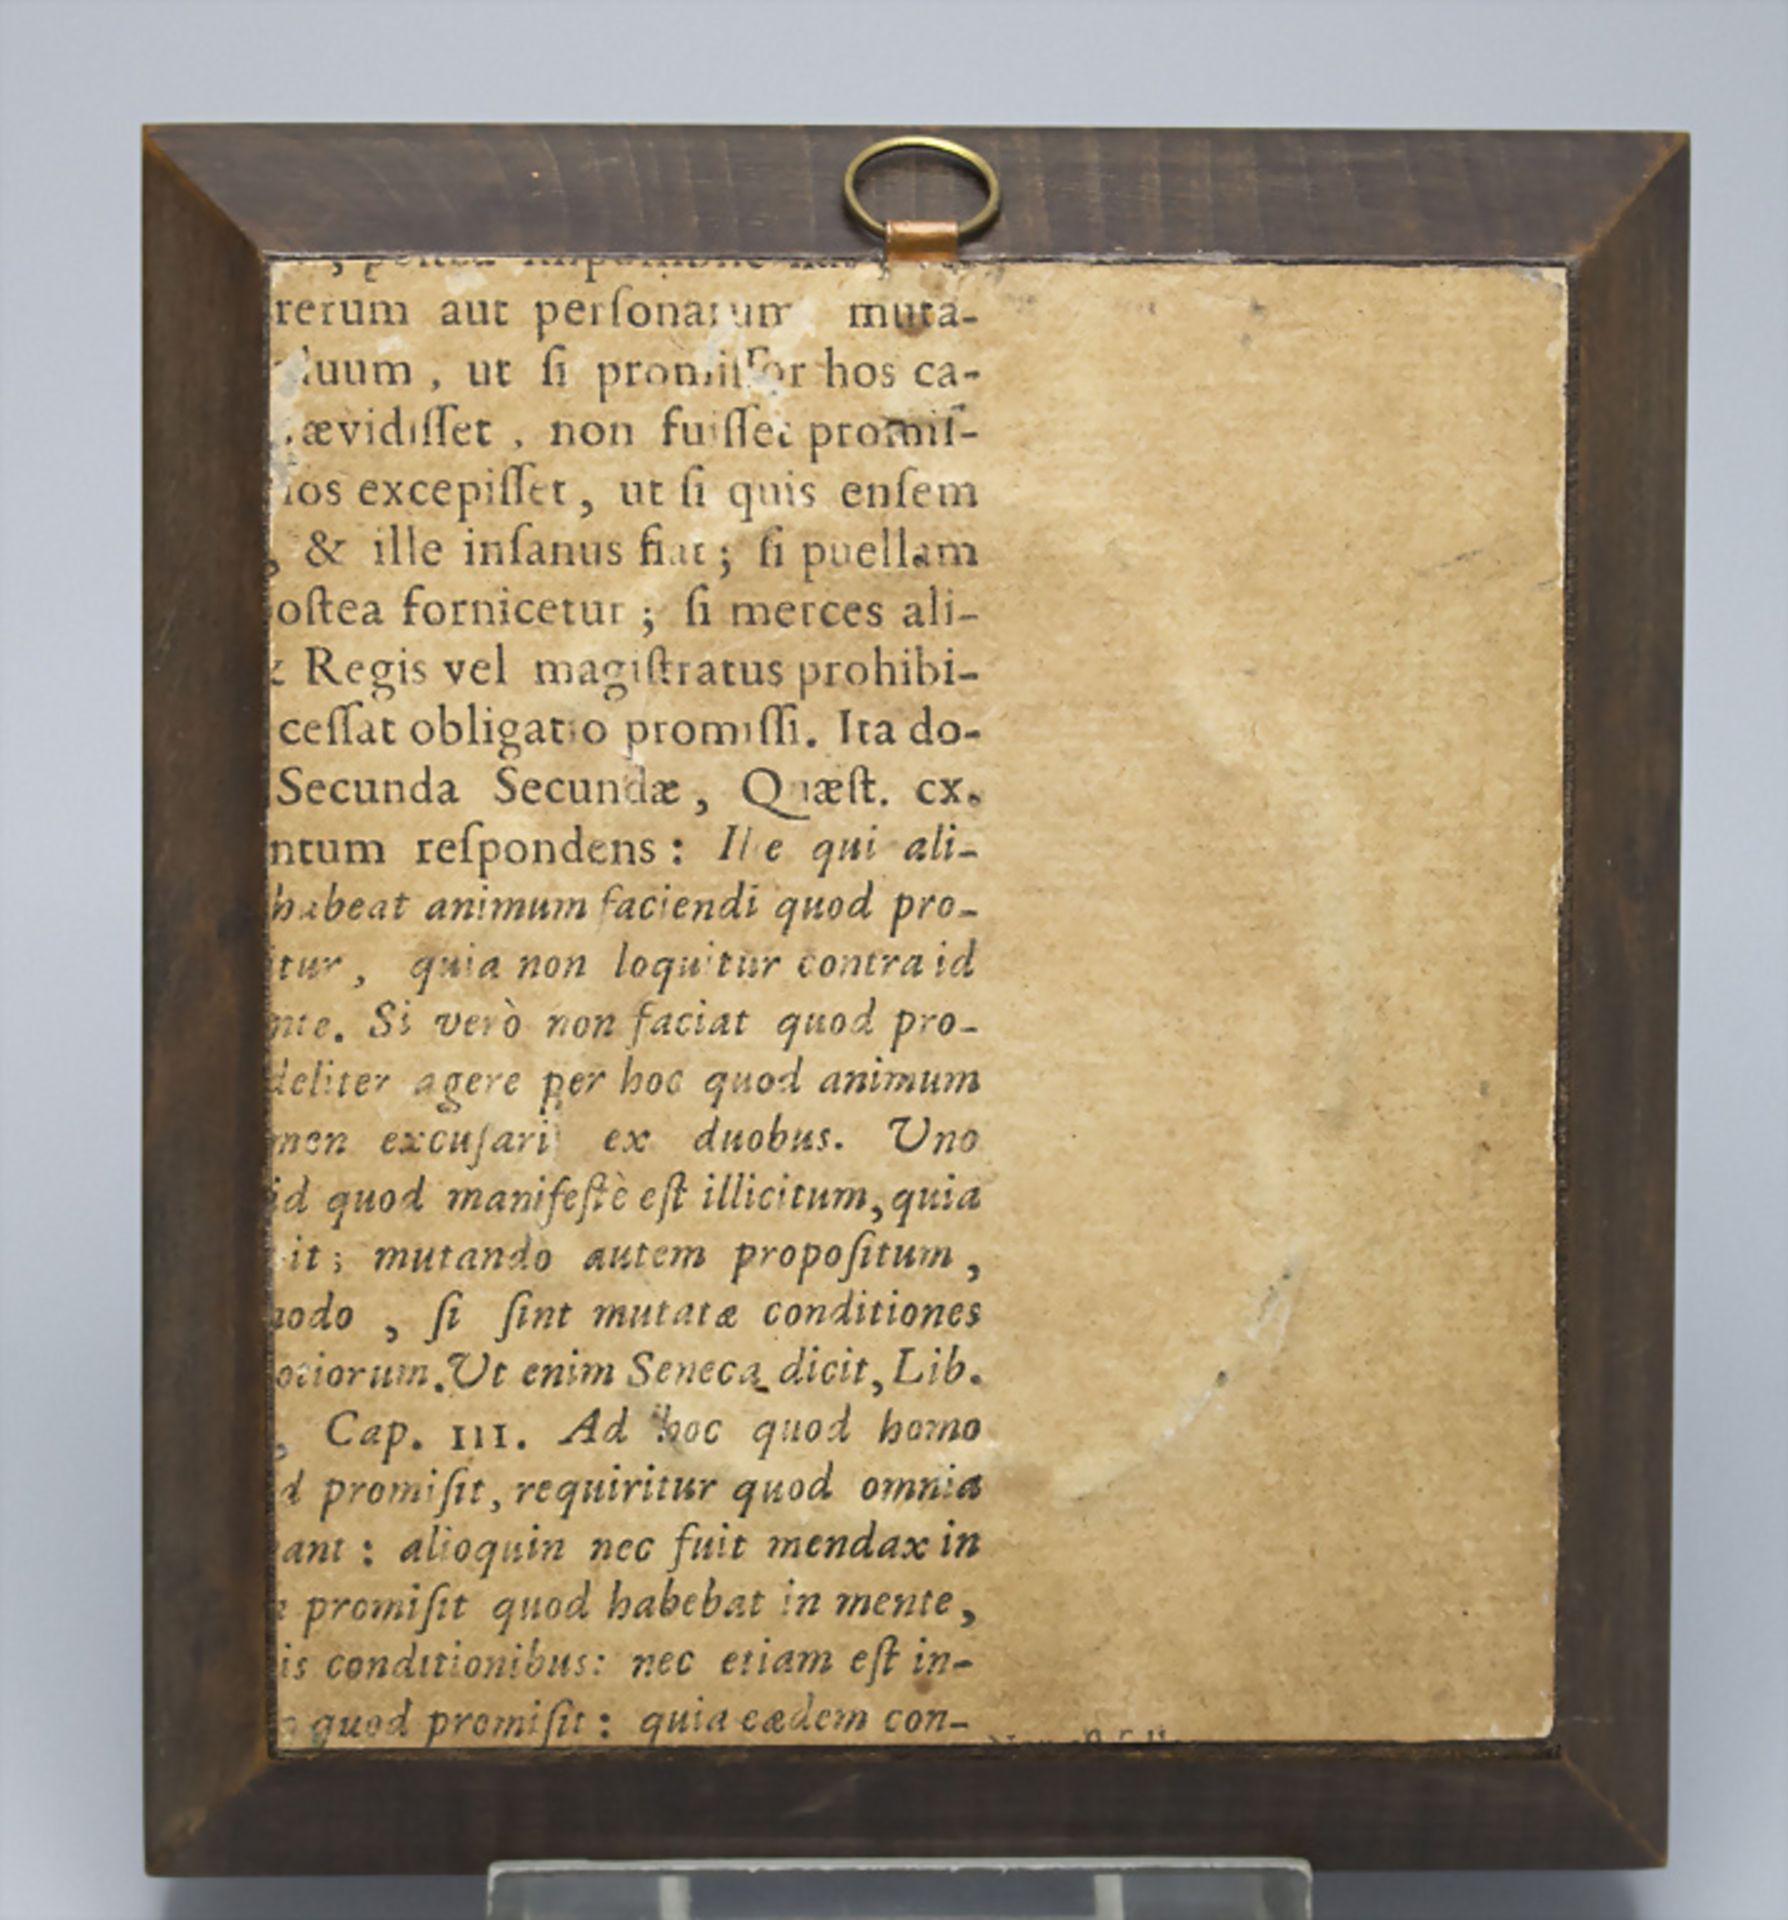 rerum aut perſonarum muta-
duum, ut ſi promiſſor hos ca-
ævidiſſet, non fuiſſet promiſ-
excepiſſet, ut ſi quis enſem
, & ille inſanus fiat; ſi puellam
oſtea fornicetur; ſi merces ali-
Regis vel magiſtratus prohibi-
ceſſat obligatio promiſſi. Ita do-
Secunda Secundæ, Quæſt. cx.
ntum reſpondens: Ille qui ali-
habeat animum faciendi quod pro-
itur, quia non loquitur contra id
nte. Si verò non faciat quod pro-
deliter agere per hoc quod animum
men excuſari ex duobus. Uno
id quod manifeſtè eſt illicitum, quia
it; mutando autem propoſitum,
modo, ſi ſint mutatæ conditiones
otiorum. Ut enim Seneca dicit, Lib.
, Cap. III. Ad hoc quod homo
d promiſit, requiritur quod omnia
ant: alioquin nec fuit mendax in
promiſit quod habebat in mente,
is conditionibus: nec etiam eſt in-
quod promiſit: quia eædem con-